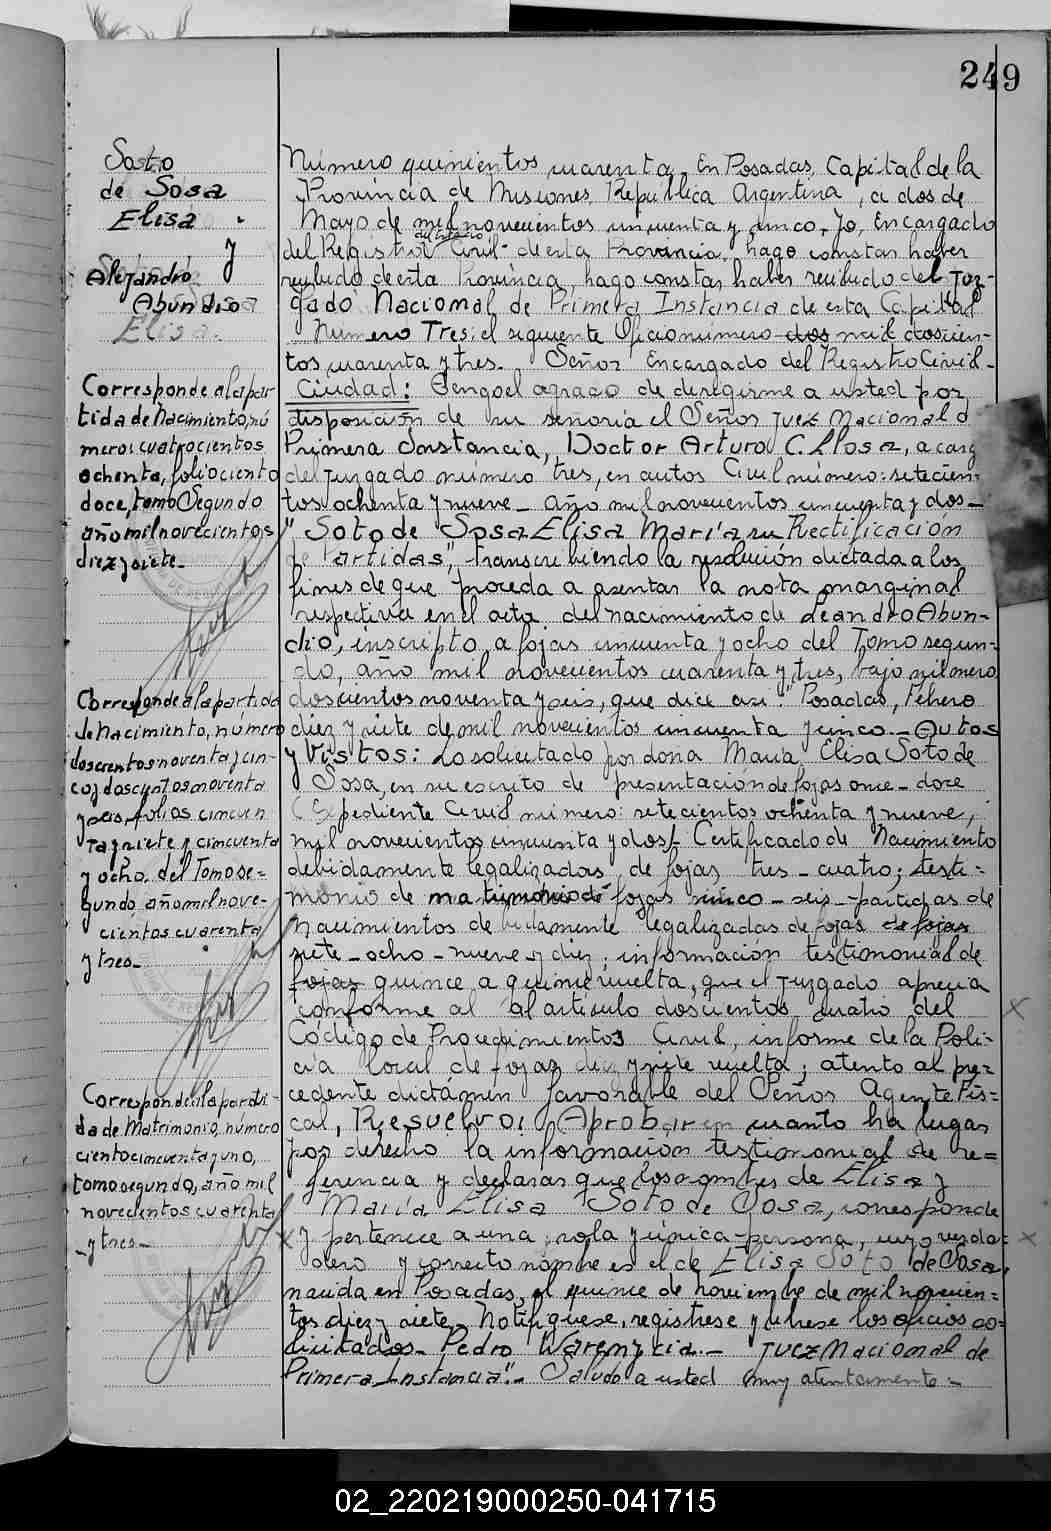 249
Soto
de Sosa
Elisa
y
Alejandro
Abundio
Elisa.
Corresponde a la par
tida de Nacimiento, nú
mero: cuatrocientos
ochenta, folio ciento
doce, tomo Segundo
año mil novecientos
diez y siete.-
Corresponde a la partida
de Nacimiento, número
doscientos noventa y cin-
co y doscientos noventa
y seis, folios cincuen
ta y siete y cincuenta
y ocho, del Tomo se=
gundo, año mil nove-
cientos cuarenta
y tres.-
Corresponde a la parti-
da de Matrimonio, número
ciento cincuenta y uno,
tomo segundo, año mil
novecientos cuarenta
y tres.-
Número quinientos cuarenta. En Posadas, Capital de la
Provincia de Misiones, República Argentina, a dos de
Mayo de mil novecientos cincuenta y cinco. Yo, Encargado
del Registro Civil de esta Provincia, hago constar haber
recibido de esta Provincia, hago constar haber recibido del Juz-
gado Nacional de Primera Instancia de esta Capital
Número Tres: el siguiente Oficio número dos mil doscien-
tos cuarenta y tres. Señor Encargado del Registro Civil-
Ciudad: Tengo el agrado de dirigirme a usted por
disposición de su señoría el Señor Juez Nacional d
Primera Instancia, Doctor Arturo C. Llosa, a carg
del Juzgado número tres, en autos Civil número: setecien-
tos ochenta y nueve - año mil novecientos cincuenta y dos-
"Soto de Sosa Elisa María su Rectificación
de Partidas", transcribiendo la resolución dictada a los
fines de que proceda a asentar la nota marginal
respectiva en el acta del nacimiento de Leandro Abun-
dio, inscripto a fojas cincuenta y ocho del Tomo segun-
do, año mil novecientos cuarenta y tres, bajo número
doscientos noventa y seis, que dice así: "Posadas, Febrero
diez y siete de mil novecientos cincuenta y cinco.- Autos
y Vistos: Lo solicitado por doña María Elisa Soto de
Sosa, en su escrito de presentación de fojas once - doce
(Expediente Civil número: setecientos ochenta y nueve,
mil novecientos cincuenta y dos/- Certificado de Nacimiento
debidamente legalizados, de fojas tres - cuatro; testi=
monio de matrimonio de fojas cinco - seis - partidas de
Nacimientos debidamente legalizadas de fojas de fojas
siete - ocho - nueve y diez; información testimonial de
fojas quince a quince vuelta, que el Juzgado aprecia
conforme al al artículo doscientos cuatro del
Código de Procedimientos Civil, informe de la Poli-
cía local de fojas diez y siete vuelta; atento al pre-
cedente dictámen favorable del Señor Agente Fis=
cal, Resuelvo: Aprobar en cuanto ha lugar
por derecho la información testimonial de re=
ferencia y declarar que los nombres de Elisa y
María Elisa Soto de Sosa, corresponde
y pertenece a una sola y única persona, cuyo verda-
dero y correcto nombre es el de Elisa Soto de Sosa,
nacida en Posadas, el quince de noviembre de mil novecien=
tos diez y siete. Notifíquese, regístrese y líbrese los oficios so-
licitados.- Pedro Warenycia.- Juez Nacional de
Primera Instancia".- Saludo a usted muy atentamente.-
02_220219000250-041715